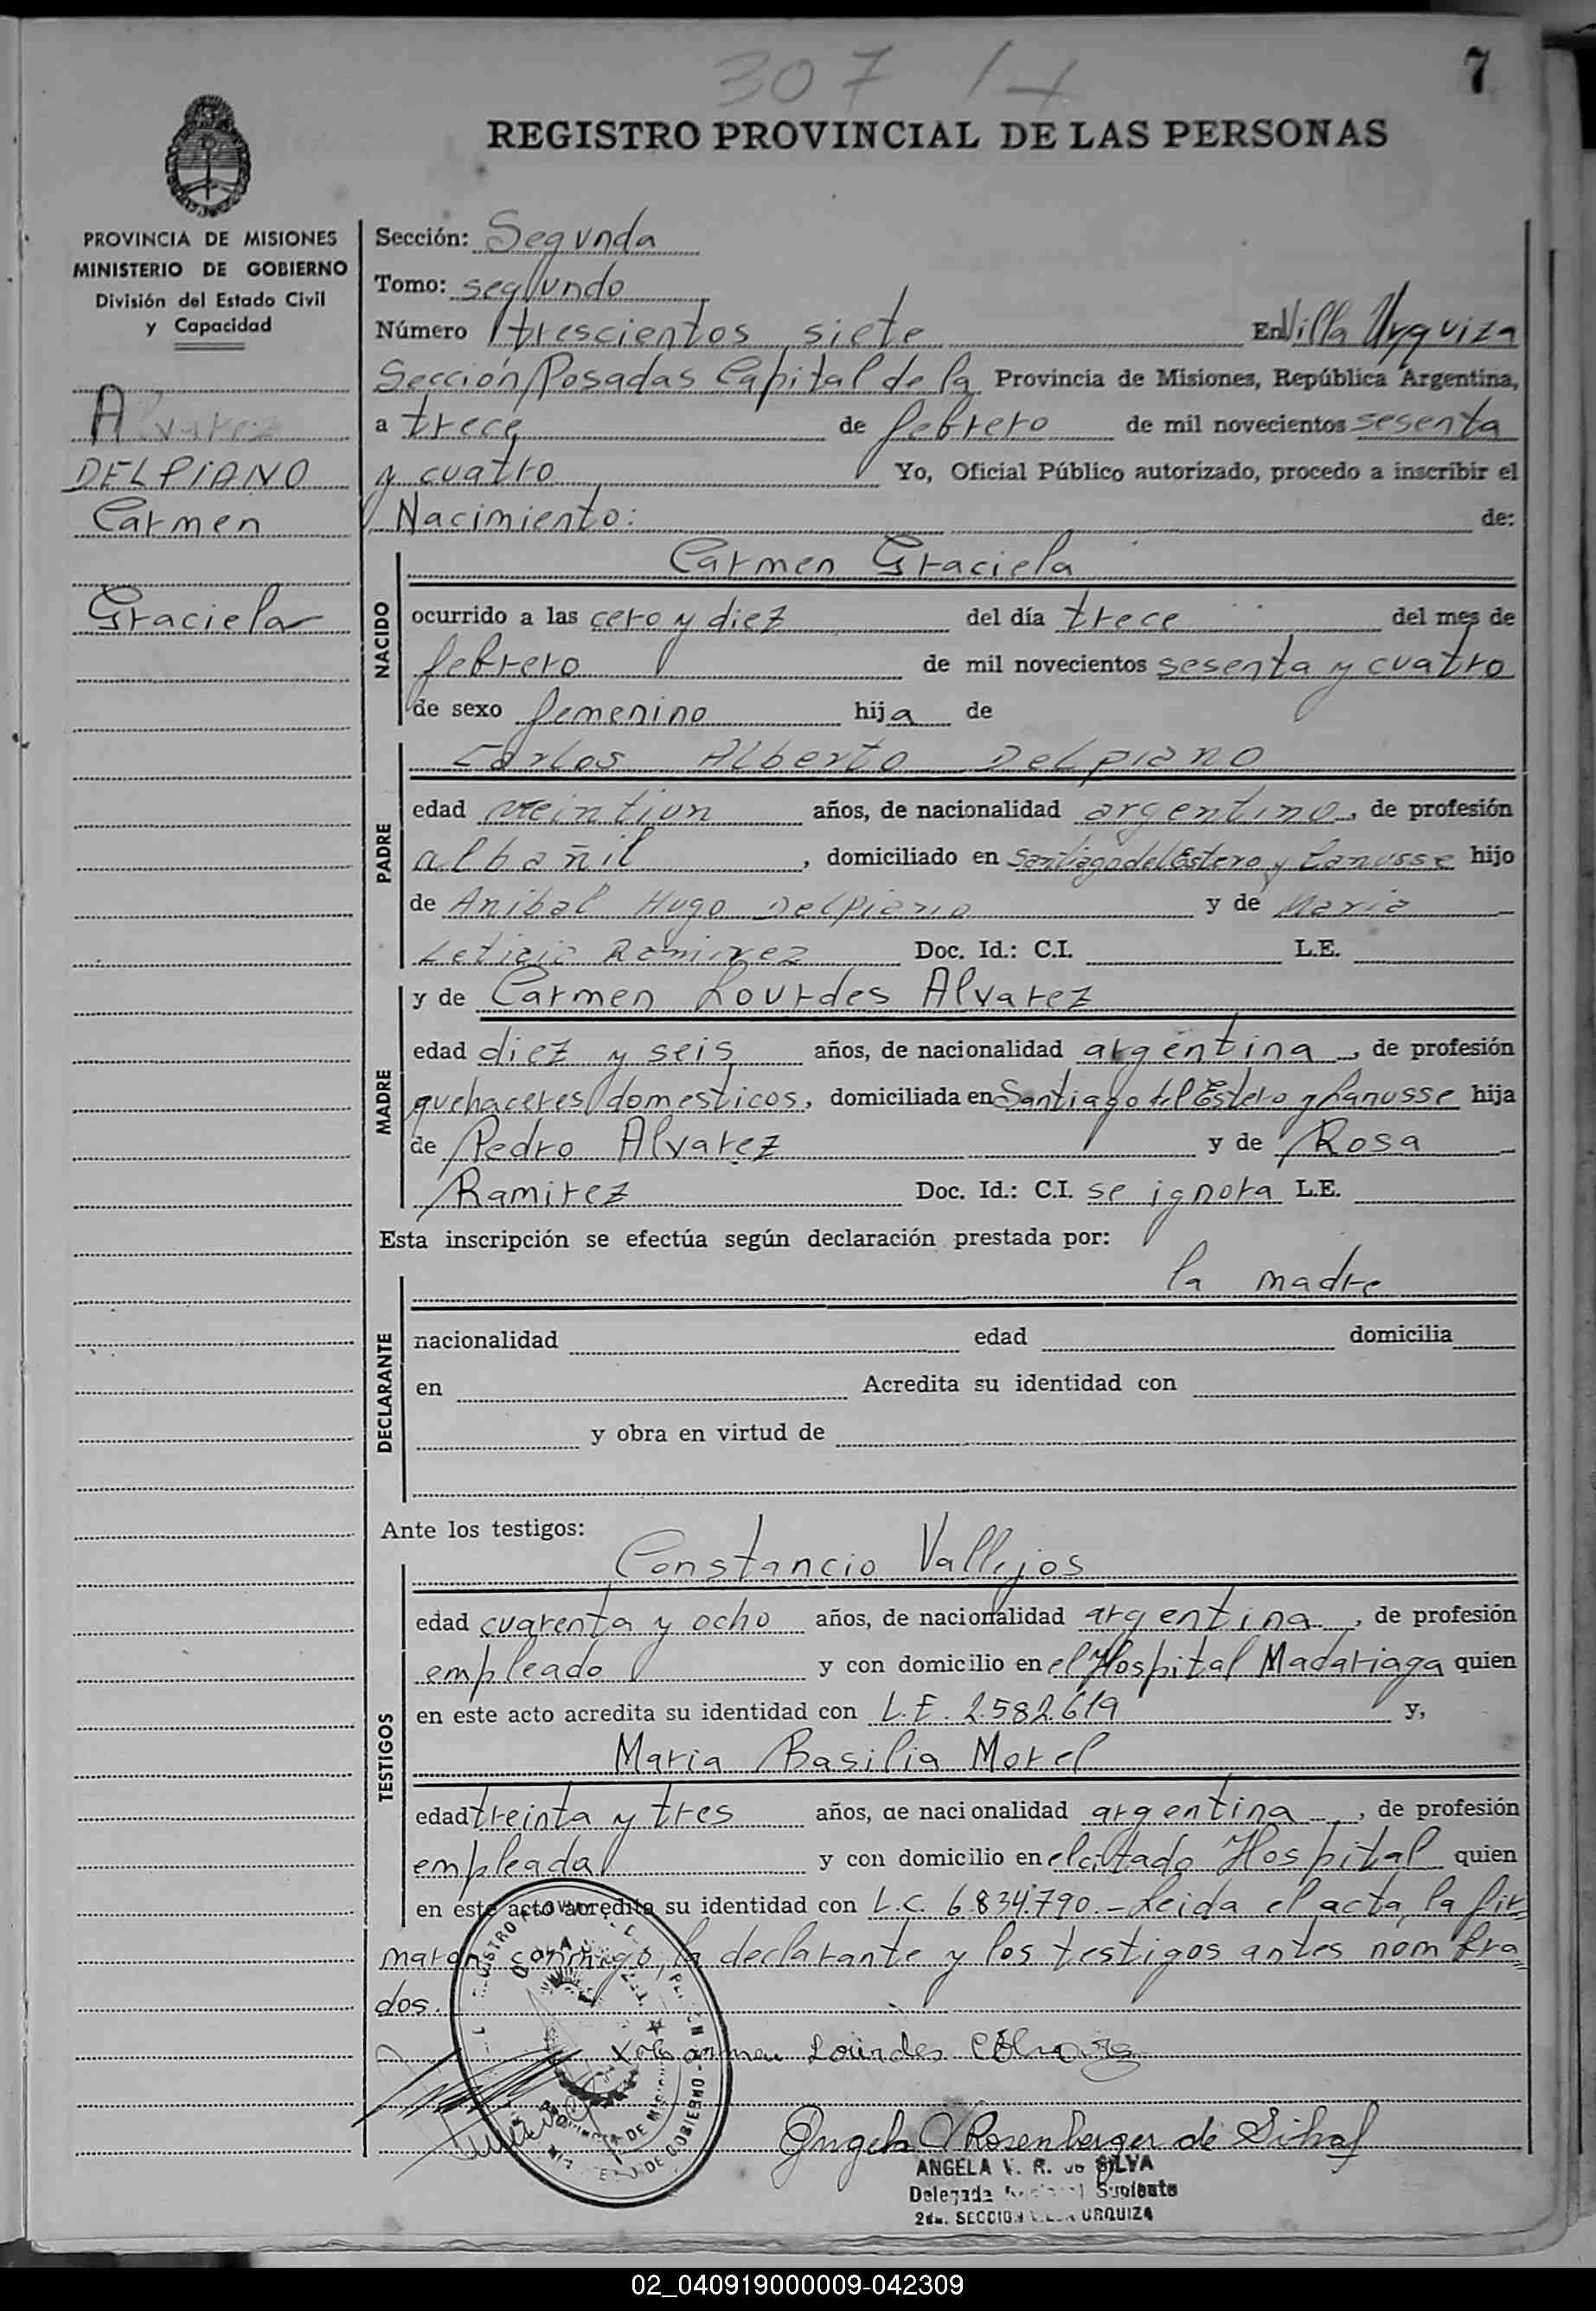 307
7
REGISTRO PROVINCIAL DE LAS PERSONAS
PROVINCIA DE MISIONES
MINISTERIO DE GOBIERNO
División del Estado Civil
y Capacidad
Alvarez
DELPIANO
Carmen
Graciela
Sección: Segunda
Tomo: segundo
Número trescientos siete En Villa Urquiza
Sección Posadas Capital de la Provincia de Misiones, República Argentina,
a trece de febrero de mil novecientos sesenta
y cuatro Yo, Oficial Público autorizado, procedo a inscribir el
Nacimiento: de:
NACIDO
Carmen Graciela
ocurrido a las cero y diez del día trece del mes de
febrero de mil novecientos sesenta y cuatro
de sexo femenino hija de
PADRE
Carlos Alberto Delpiano
edad veintiun años, de nacionalidad argentino, de profesión
albañil, domiciliado en Santiago del Estero y Lanusse hijo
de Anibal Hugo Delpiano y de Maria
Leticia Ramirez Doc. Id.: C.I. L.E.
MADRE
y de Carmen Lourdes Alvarez
edad diez y seis años, de nacionalidad argentina, de profesión
quehaceres domesticos, domiciliada en Santiago del Estero y Lanusse hija
de Pedro Alvarez y de Rosa
Ramirez Doc. Id.: C.I. se ignora L.E.
Esta inscripción se efectúa según declaración prestada por:
la madre
DECLARANTE
nacionalidad edad domicilia
en Acredita su identidad con
y obra en virtud de
Ante los testigos:
TESTIGOS
Constancio Vallejos
edad cuarenta y ocho años, de nacionalidad argentina, de profesión
empleado y con domicilio en el Hospital Madariaga quien
en este acto acredita su identidad con L.E. 2.582.619 y,
Maria Basilia Morel
edad treinta y tres años, de nacionalidad argentina, de profesión
empleada y con domicilio en el citado Hospital quien
en este acto acredita su identidad con L.C. 6.834.790.- Leida el acta, la fir-
maron conmigo, la declarante y los testigos antes nombra-
dos.
x Carmen Lourdes Alvarez
Angela V Rosenberger de Silva
ANGELA V. R. de SILVA
Delegada Suplente
2da. SECCION VILLA URQUIZA
02_040919000009-042309